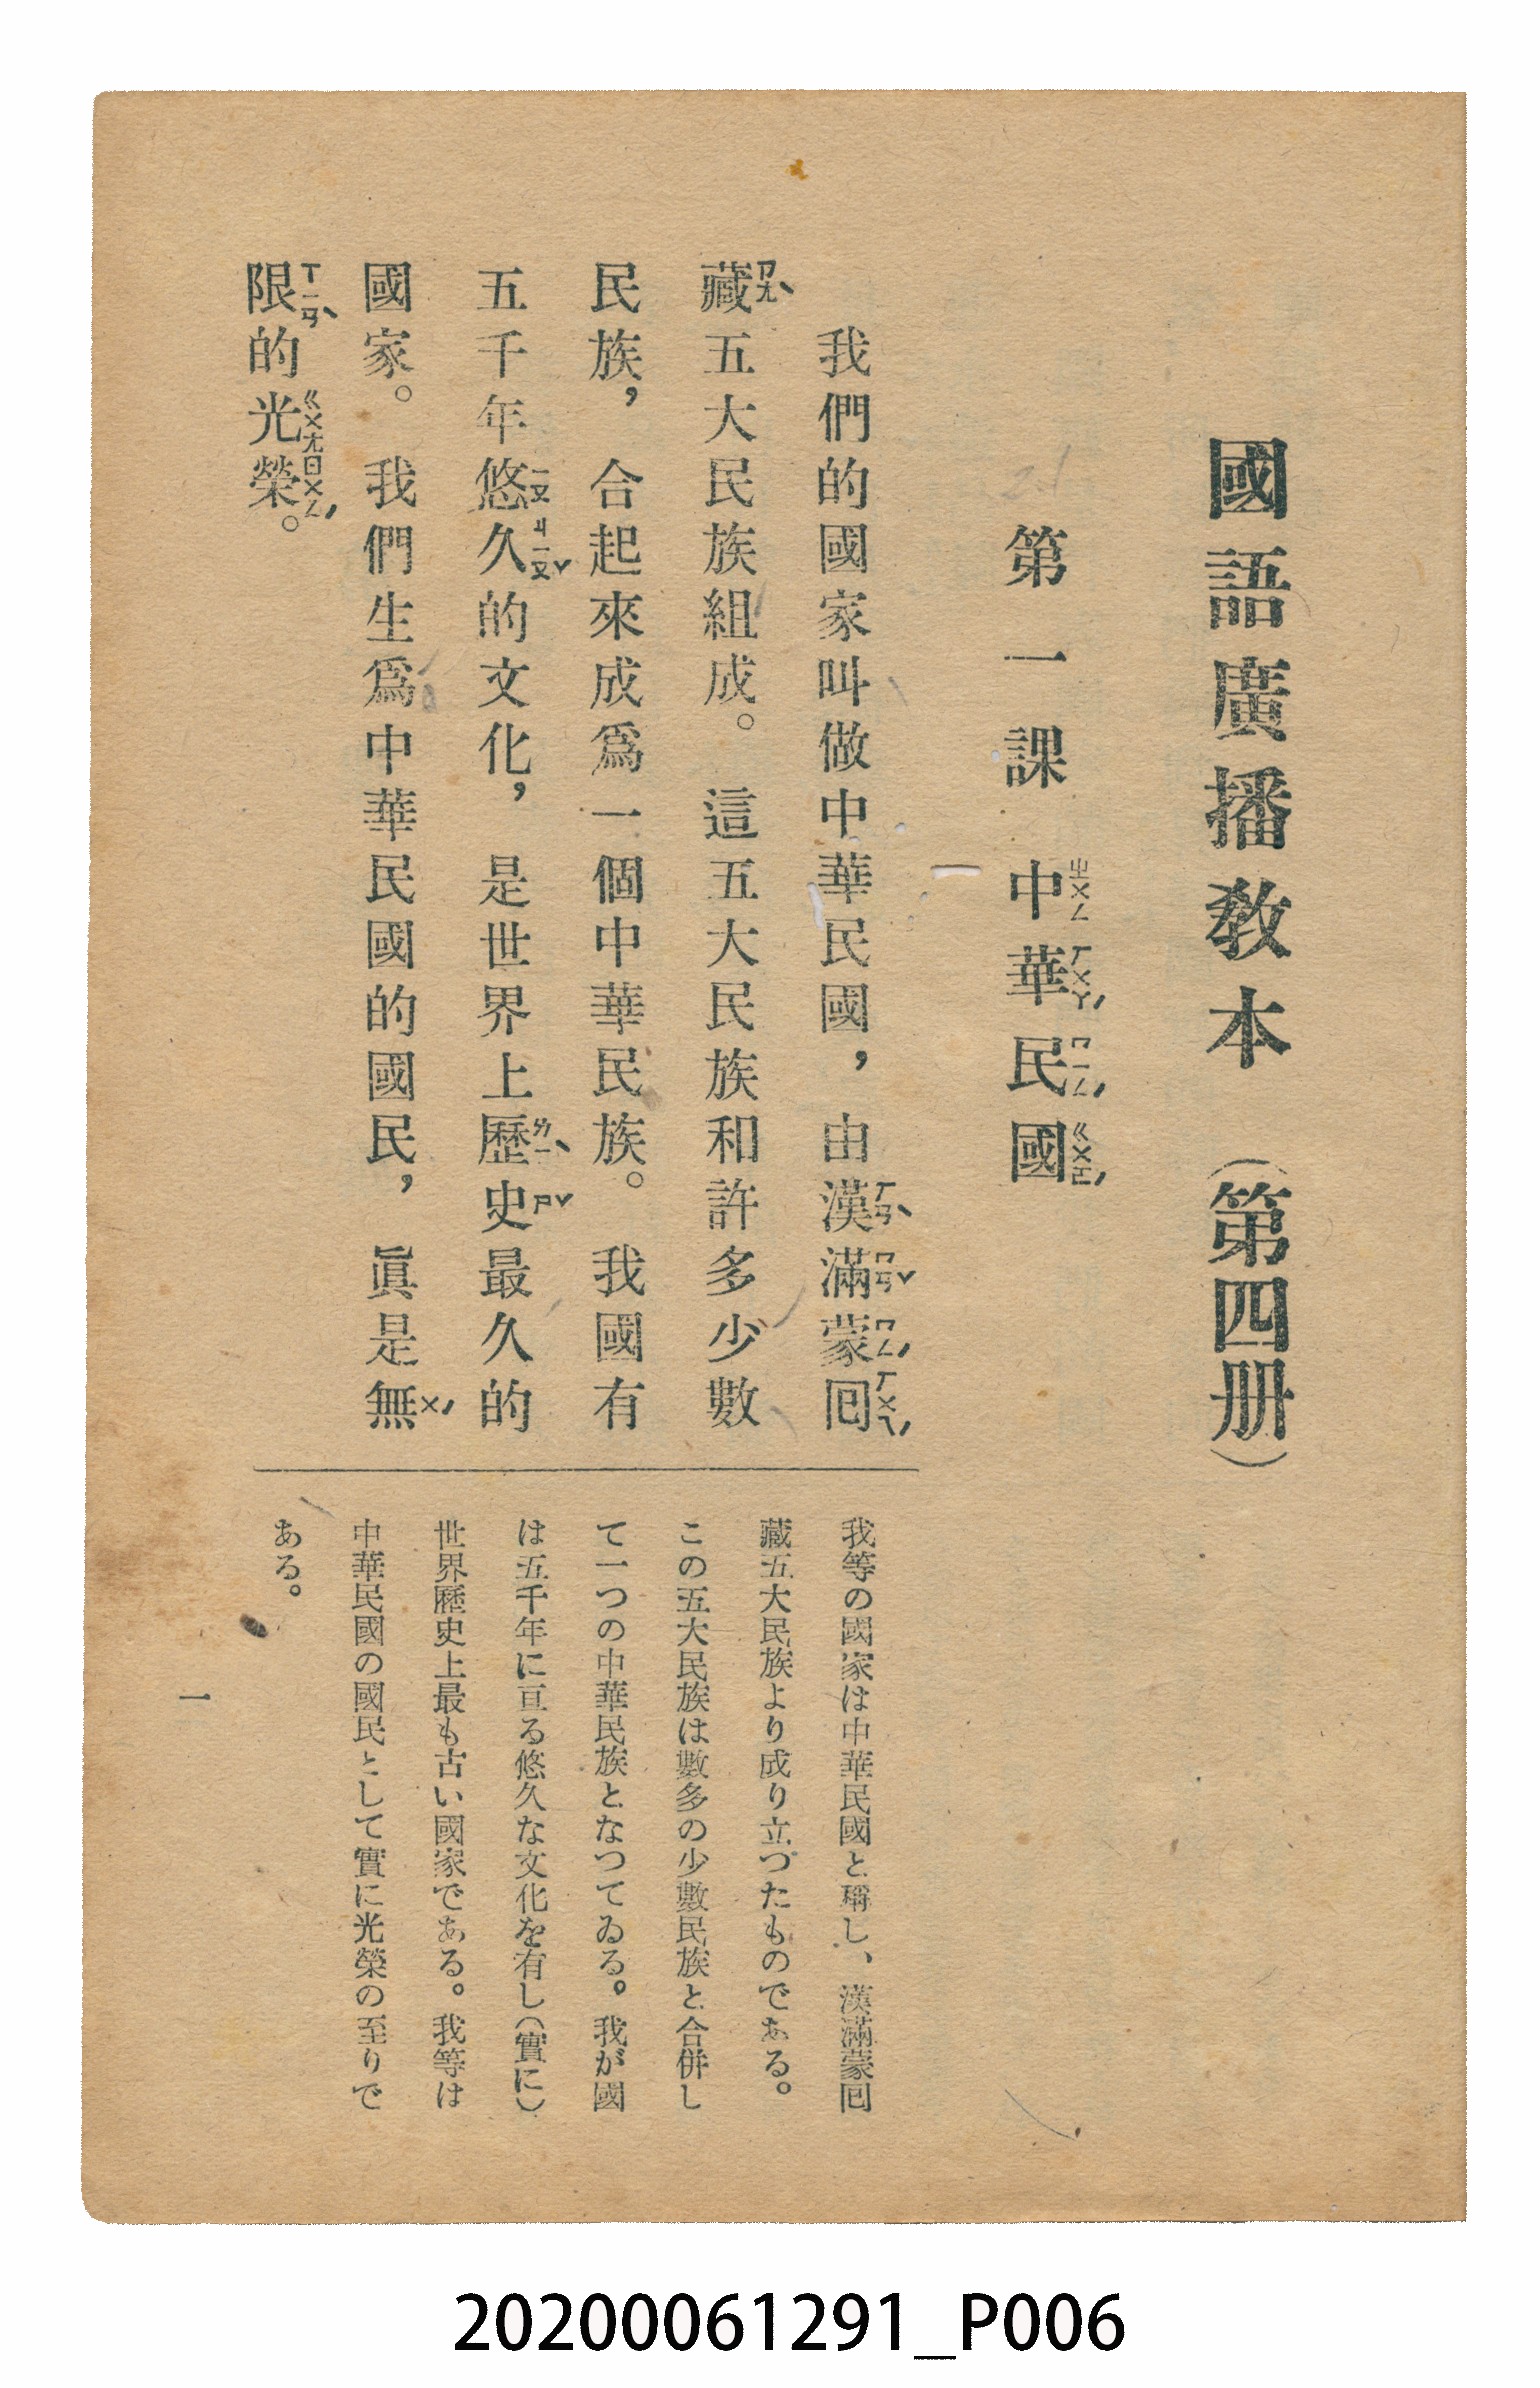 國語廣播教本(第四册)
第一課 中華民國
ㄓㄨㄥ ㄏㄨㄚˊ ㄇㄧㄥˊ ㄍㄨㄛˊ
我們的國家叫做中華民國，由漢滿蒙囘
ㄏㄢˋ ㄇㄢˇ ㄇㄥˊ ㄏㄨㄟˊ
藏五大民族組成。這五大民族和許多少數
ㄗㄤˋ
民族，合起來成爲一個中華民族。我國有
五千年悠久的文化，是世界上歷史最久的
ㄧㄡ ㄐㄧㄡˇ ㄌㄧˋ ㄕˇ
國家。我們生爲中華民國的國民，眞是無
ㄨˊ
限的光榮。
ㄒㄧㄢˋ ㄍㄨㄤ ㄖㄨㄥˊ
我等の國家は中華民國と稱し、漢滿蒙囘
藏五大民族より成り立つたものである。
この五大民族は數多の少數民族と合併し
て一つの中華民族となつてゐる。我が國
は五千年に亘る悠久な文化を有し(實に)
世界歷史上最も古い國家である。我等は
中華民國の國民として實に光榮の至りで
ある。
一
20200061291_P006